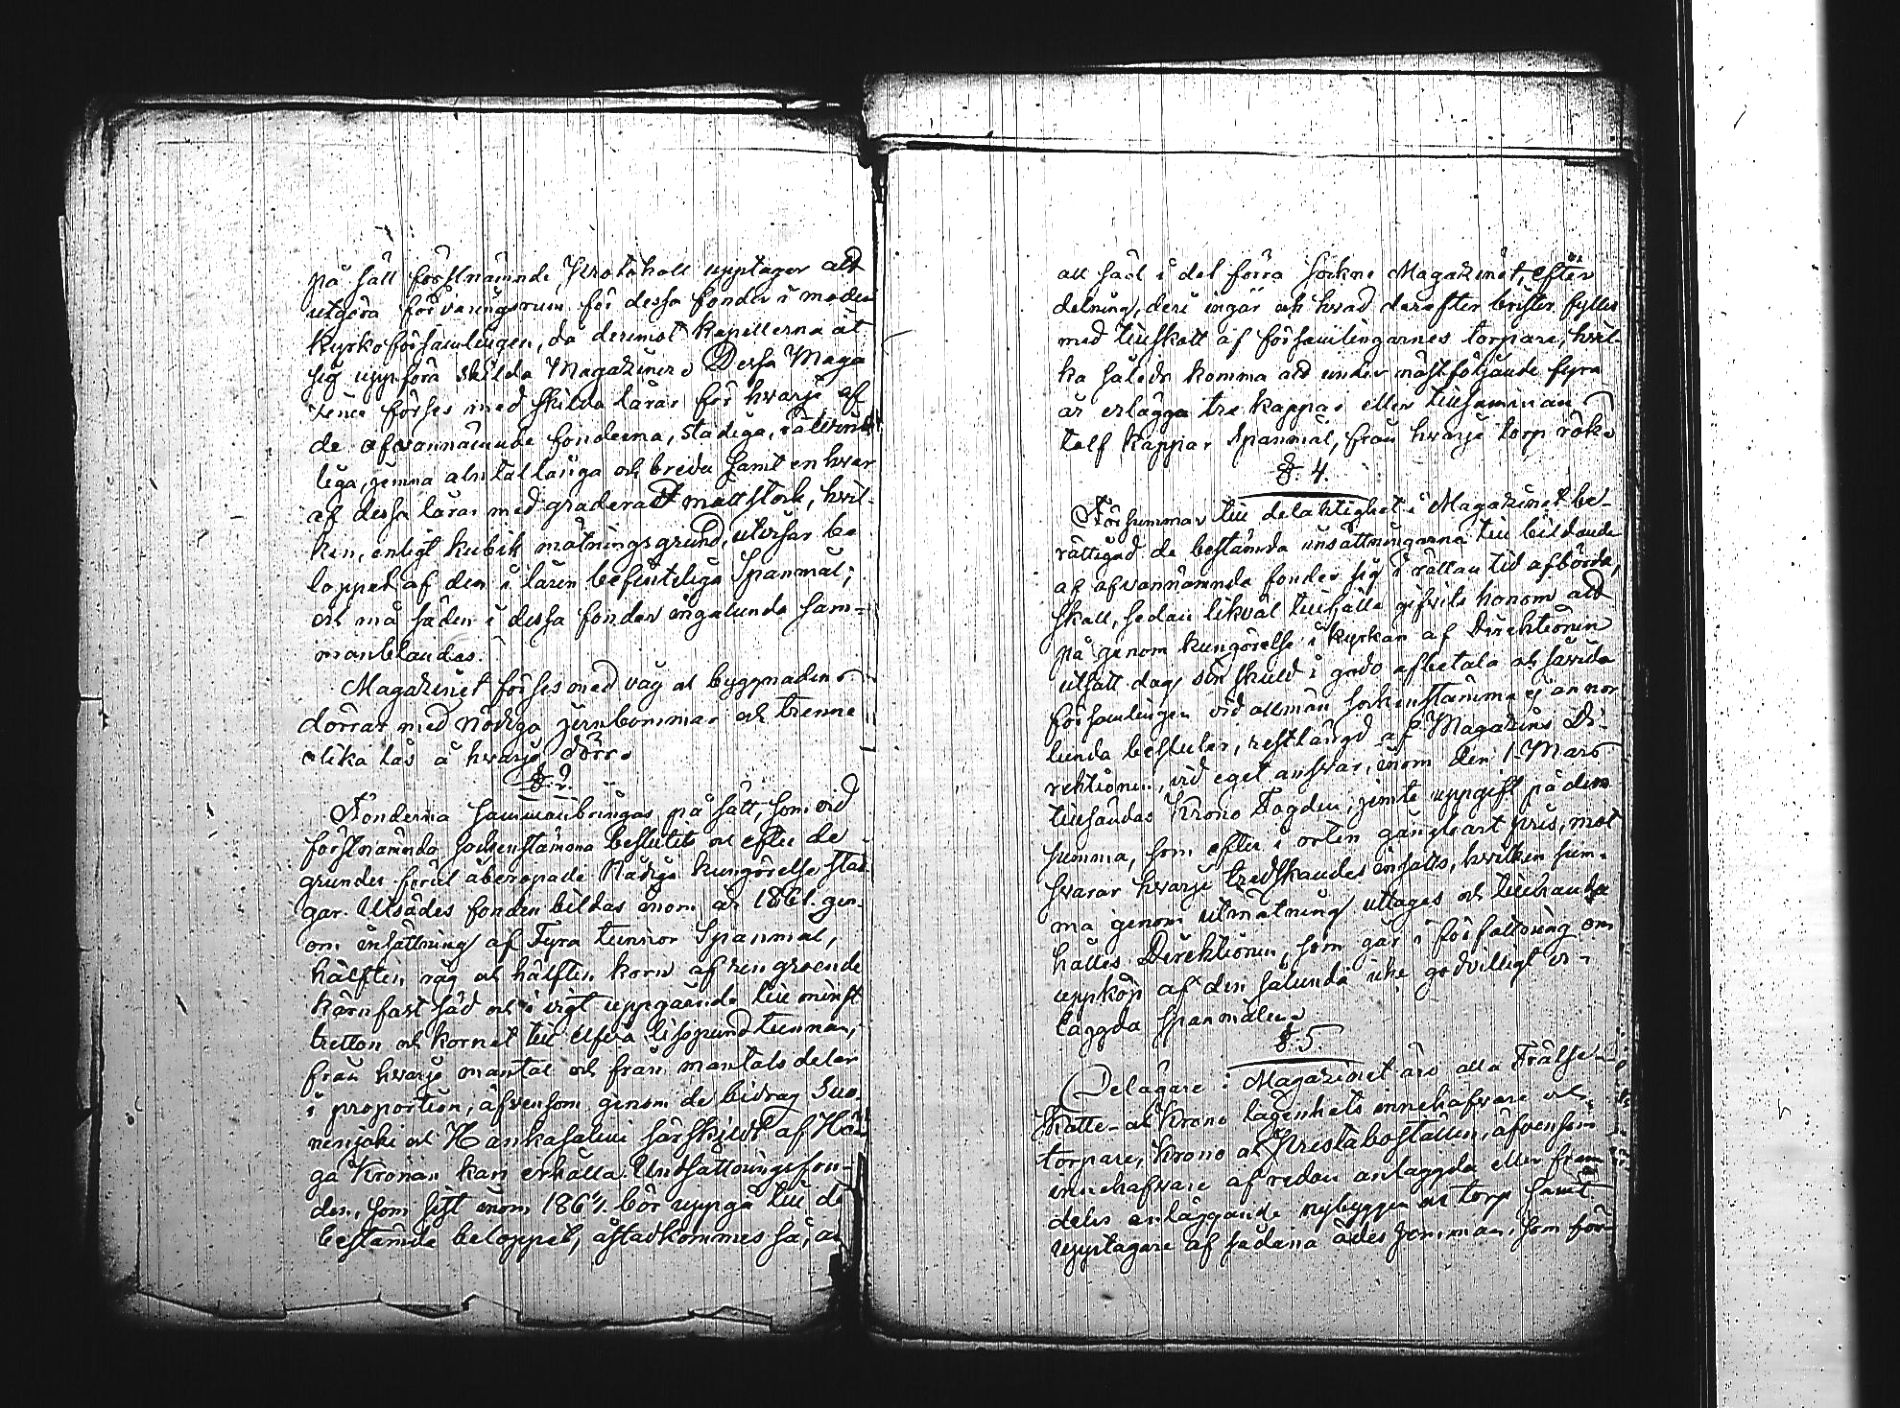 på sätt förstnämnde Protokoll upptager att
utgöra förvaringsrum för dessa fonder i moder
kyrkoförsamlingen, då deremot kapellerna åt
sig uppföra skilda Magaziner. Dessa Maga
zine förses med skilda lårar för hvarje af
de ofvannämnde fonderna, stadiga, rätvink
liga, jemna alntal långa och breda samt en hvar
af dessa lårar med graderadt måttstock, hvil-
ken, enligt kubik mätningsgrund, utvisar be
loppet af den i låren befintliga Spanmål;
och må säden i dessa fonder ingalunda sam-
manblandas.
Magazinet förses med våg och byggnadens
dörrar med nödiga jernbommar och trenne
olika lås å hvarje dörr.
§. 2.
Fonderna sammanbringas på sätt, som vid
förstnämnda sockenstämma beslutits och efter de
grunder förut åberopade Nådiga kungörelse stad-
gar. Utsädes fonden bildas inom år 1861. gen-
om insättning af Fyra tunnor Spanmål,
hälften råg och hälften korn af ren groende
kärnfast säd och i vigt uppgående till minst
tretton och kornet till elfva lispund tunnan,
från hvarje mantal och från mantals delar
i proportion, äfvensom genom de bidrag Suo-
nenjoki och Hankasalmi särskildt af Hö
ga Kronan kan erhålla. Undsättningsfon-
den, som sist inom 1864. bör uppgå till de
bestämda beloppet, åstadkommes så, at
all säd i det förra sockne Magazinet, efter
delning, deri ingår och hvad derefter brister, fylles
med tillskott af församlingarnes torpare, hvil-
ka således komma att under nästföljande fyra
år erlägga tre kappar eller tillsamman
tolf kappar Spanmål, från hvarje torp rök.
§. 4.
Försummar till delaktighet i Magazinet be-
rättigad de bestämda insättningarna till bildande
af ofvannämnda fonder sig i rättan tid afbörda,
skall, sedan likväl tillfälle gifvits honom att
på genom kungörelse i kyrkan af Direktionen
utsatt dag sin skuld i godo afbetala och såvida
församlingen vid allmän sockenstämma ej annor
lunda besluter, restlängd af Magazins Di-
rektionen, vid eget ansvar, inom den 1. Mars
tillsändas Krono Fogden, jemte uppgift på den
summa, som efter i orten gångbart pris, mot
svarar hvarje tredskandes insatts, hvilken sum-
ma genom utmätning uttages och tillhanda
hålles Direktionen, som går i författning om
uppköp af den sålunda icke godvilligt er-
laggda Spanmålen.
§. 5.
Delägare i Magazinet äro alla Frälse-
Skatte- och Krono lägenhets innehafvare och
torpare, Krono och Prestabostället, äfvensom
innehafvare af redan anlaggda eller fram
deles anläggande nybyggen och torp samt
upptagare af sådana ödes hemman, som för